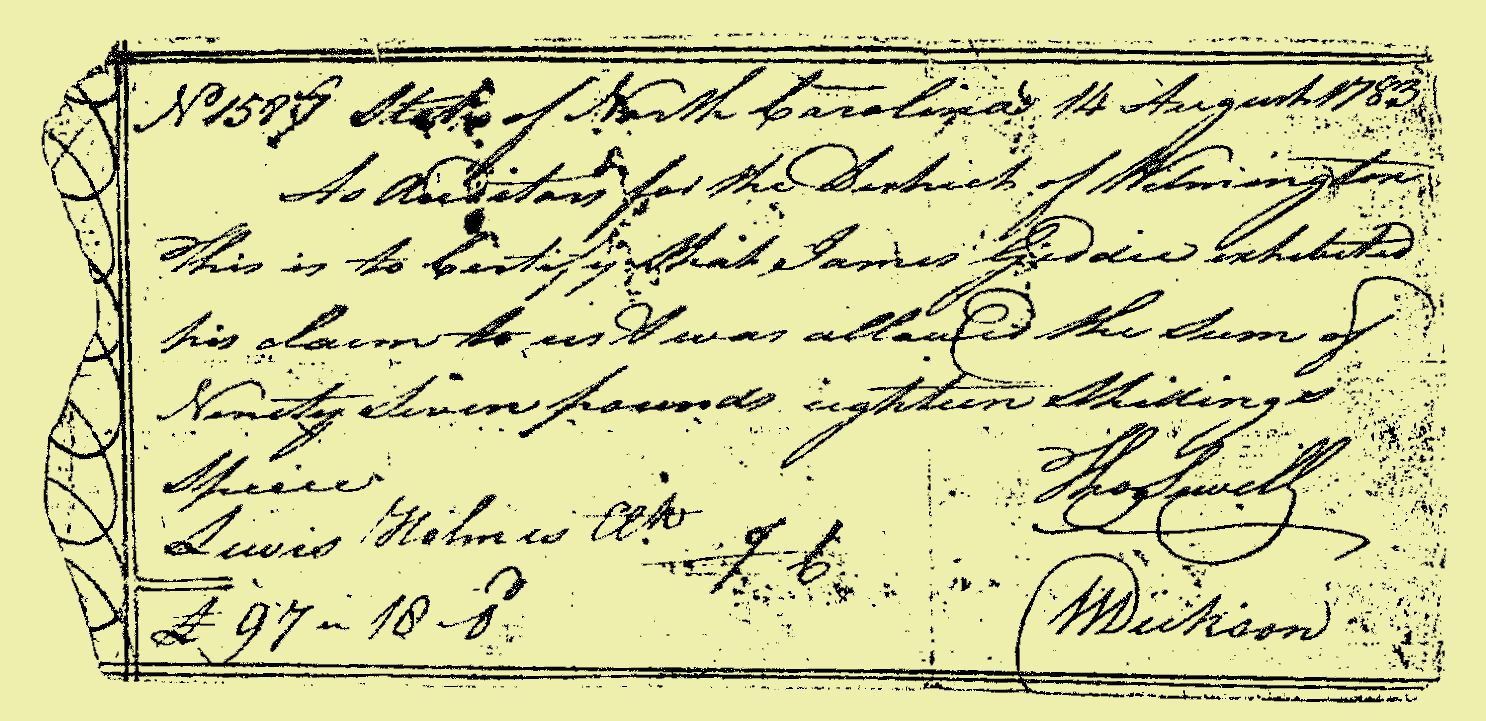 No 1587 State of North Carolina 14 August 1783
As Auditors for the District of Wilmington
This is to Certify that James Geddie exhibited
his claim to us & was allowed the Sum of
Ninety Seven pounds eighteen Shillings
Specie
Thos Sewell
Lewis Holmes Clk
£ 97 - 18 -
W Dickson